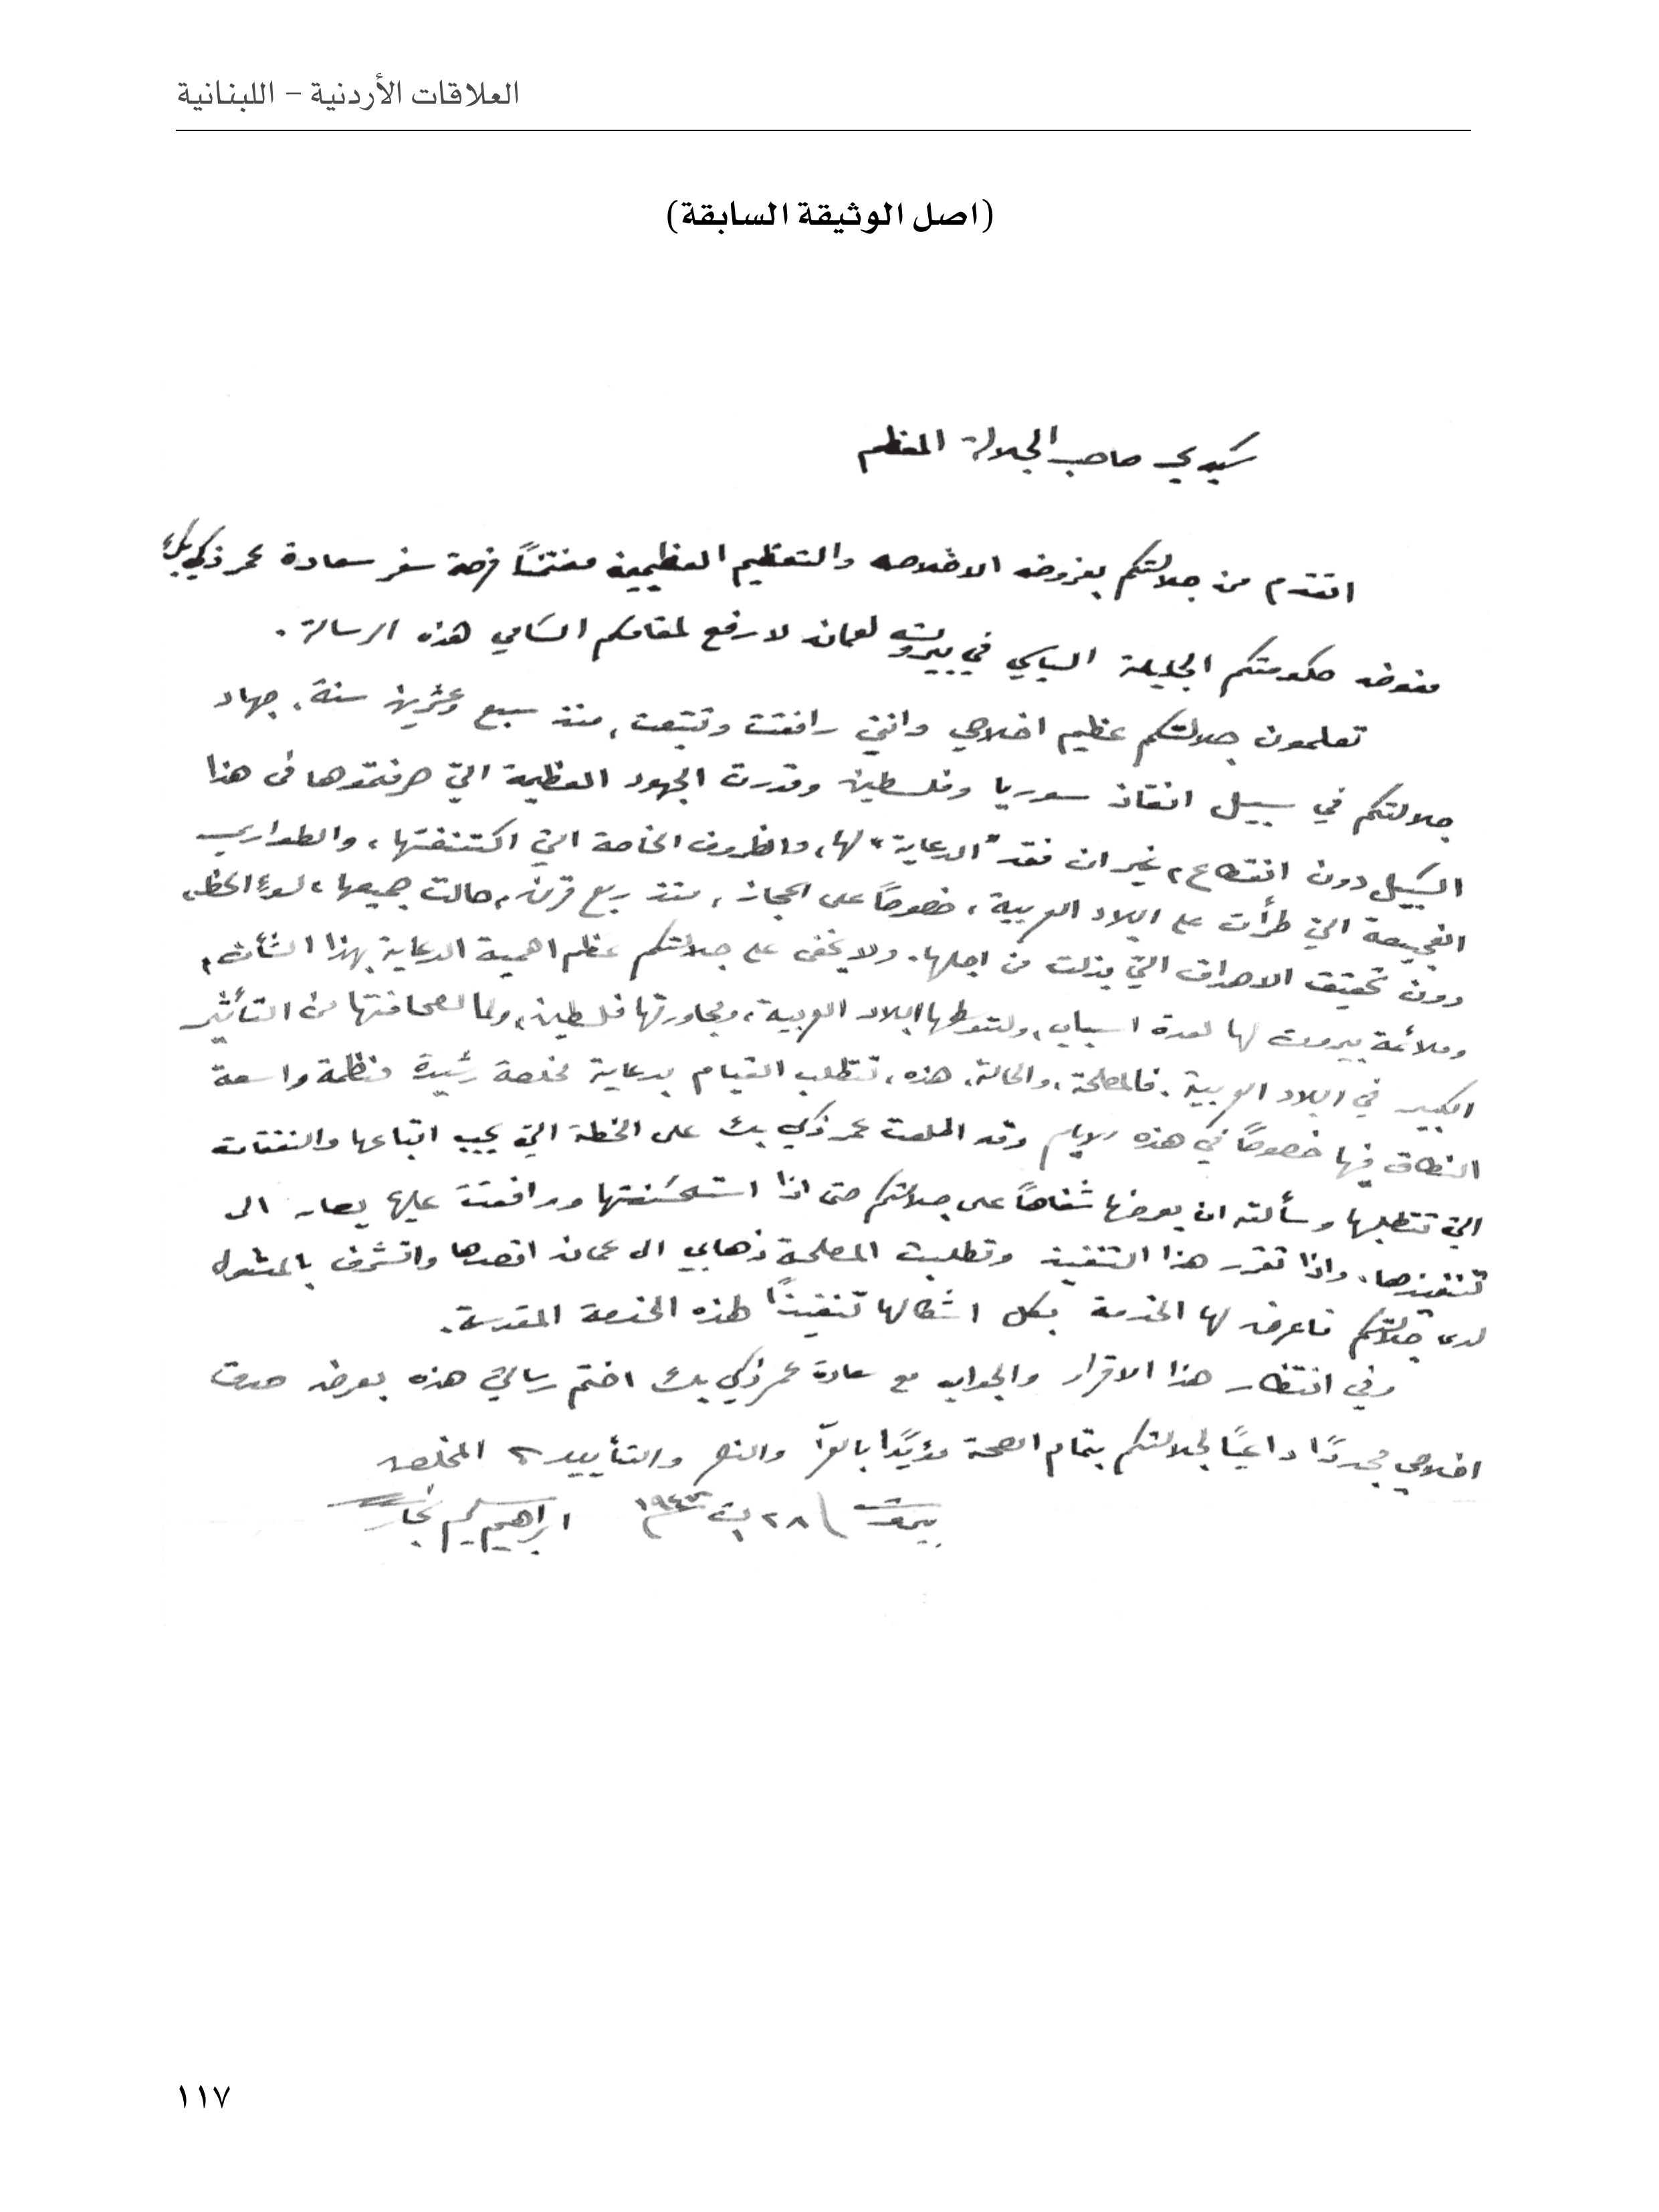 العلاقات الأردنية – اللبنانية
(اصل الوثيقة السابقة)
سيدي صاحب الجلالة المعظم
اتقدم من جلالتكم بفروض الاخلاص والتعظيم العظيمين مغتنمًا فرصة سفر سعادة عمر زكي بك
مفوض حكومتكم الجليلة السياسي في بيروت لعمان لارفع لمقامكم السامي هذه الرسالة .
تعلمون جلالتكم عظيم اخلاصي وانني رافقت وتتبعت ، منذ سبع وعشرين سنة ، جهاد
جلالتكم في سبيل انقاذ سوريا وفلسطين وقدرت الجهود العظيمة التي صرفتموها في هذا
السبيل دون انقطاع ، غير ان فقد "الدعاية" لها ، والظروف الخاصة التي اكتنفتها ، والطواريء
الفجيعة التي طرأت على البلاد العربية ، خصوصاً على الحجاز ، منذ ربع قرن ، حالت جميعها ، لسوء الحظ ،
دون تحقيق الاهداف التي بذلت من اجلها . ولا يخفى على جلالتكم عظم اهمية الدعاية بهذا الشأن ،
وملائمة بيروت لها لعدة اسباب ، ولتوسطها البلاد العربية ، ومجاورتها فلسطين ، ولما لصحافتها من التأثير
الكبير في البلاد العربية . فالمصلحة ، والحالة ، هذه ، تتطلب القيام بدعاية مخلصة رشيدة منظمة واسعة
النطاق فيها خصوصاً في هذه الايام وقد اطلعت عمر زكي بك على الخطة التي يجب اتباعها والنفقات
التي تتطلبها وسألته ان يعرضها شفاهاً على جلالتكم حتى اذا استحسنتها ووافقت عليها يصار الى
تنفيذها . واذا تقرر هذا التنفيذ وتطلبت المصلحة ذهابي الى عمان اقصدها واتشرف بالمثول
لدى جلالتكم فاعرض لها الخدمة بكل اشكالها تنفيذاً لهذه الخدمة المقدسة .
وفي انتظار هذا الاقرار والجواب مع سعادة عمر زكي بك اختم رسالتي هذه بعرض صدق
اخلاصي مجددًا داعيًا لجلالتكم بتمام الصحة مؤيَّدًا بالعز والنصر والتأييد المخلص
بيروت ٢٨ ت١ ابراهيم سليم نجار
١١٧